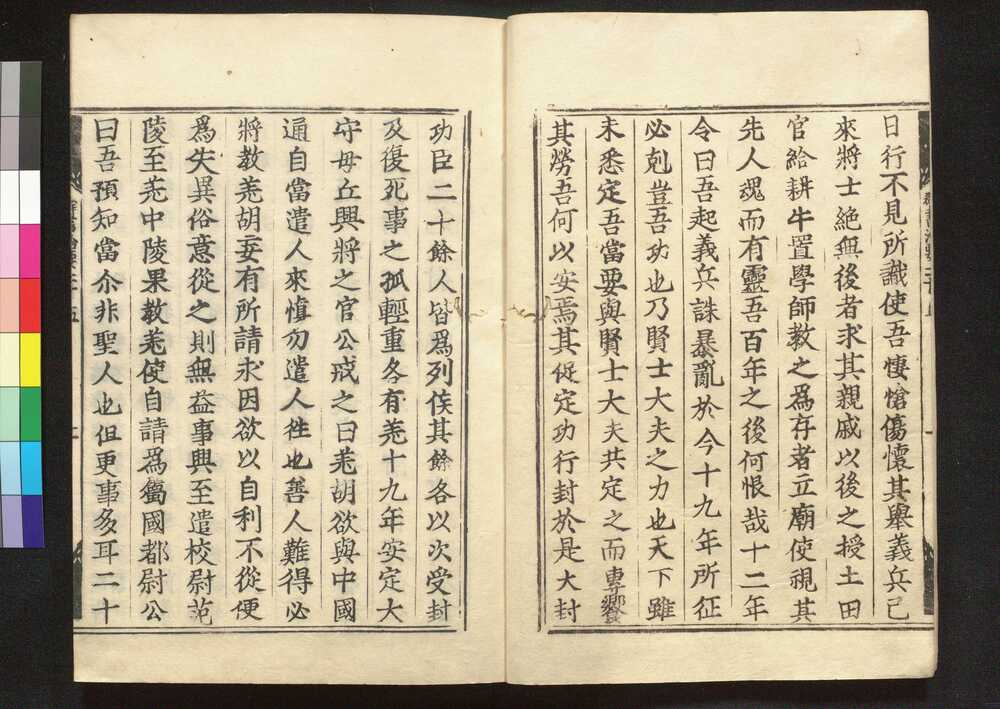 日行不見所識使吾悽愴傷懷其舉義兵已
來將士絶無後者求其親戚以後之授土田
官給耕牛置學師教之爲存者立廟使視其
先人魂而有靈吾百年之後何恨哉十二年
令曰吾起義兵誅暴亂於今十九年所征
必剋豈吾功也乃賢士大夫之力也天下雖
未悉定吾當要與賢士大夫共定之而專饗
其勞吾何以安焉其促定功行封於是大封
功臣二十餘人皆爲列侯其餘各以次受封
及復死事之孤輕重各有差十九年安定大
守毋丘興將之官公戒之曰羌胡欲與中國
通自當遣人來慎勿遣人徃也善人難得必
將教羌胡妄有所請求因欲以自利不從便
爲失異俗意從之則無益事興至遣校尉范
陵至羌中陵果教羌使自請爲屬國都尉公
曰吾預知當尒非聖人也但更事多耳二十